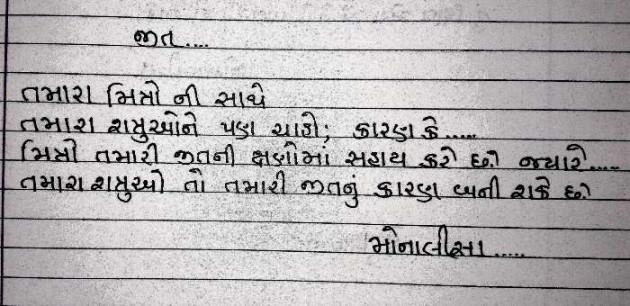 જીત....
તમારા મિત્રો ની સાથે
તમારા શત્રુઓને પણ ચાહો; કારણ કે.....
મિત્રો તમારી જીતની ક્ષણોમાં સહાય કરે છે. જ્યારે.....
તમારા શત્રુઓ તો તમારી જીતનું કારણ બની શકે છે.
મોનાલીસા.....